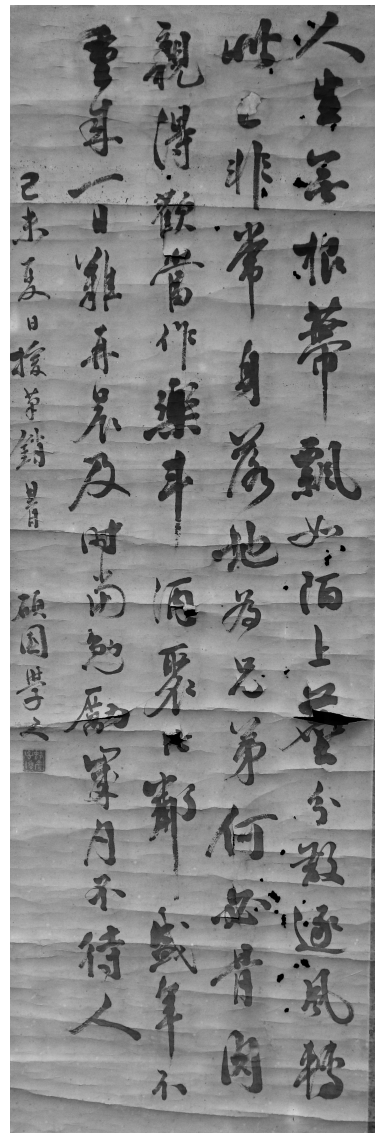 人生無根蔕飄如陌上塵分散逐風轉
此已非常身落地為兄弟何必骨肉
親得歡當作樂斗酒聚比鄰盛年不
重來一日難再晨及時當勉勵歲月不待人
己未夏日 碩園學